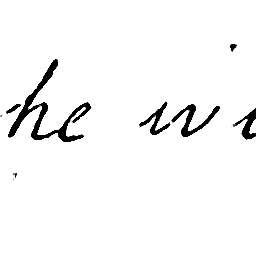 he wi